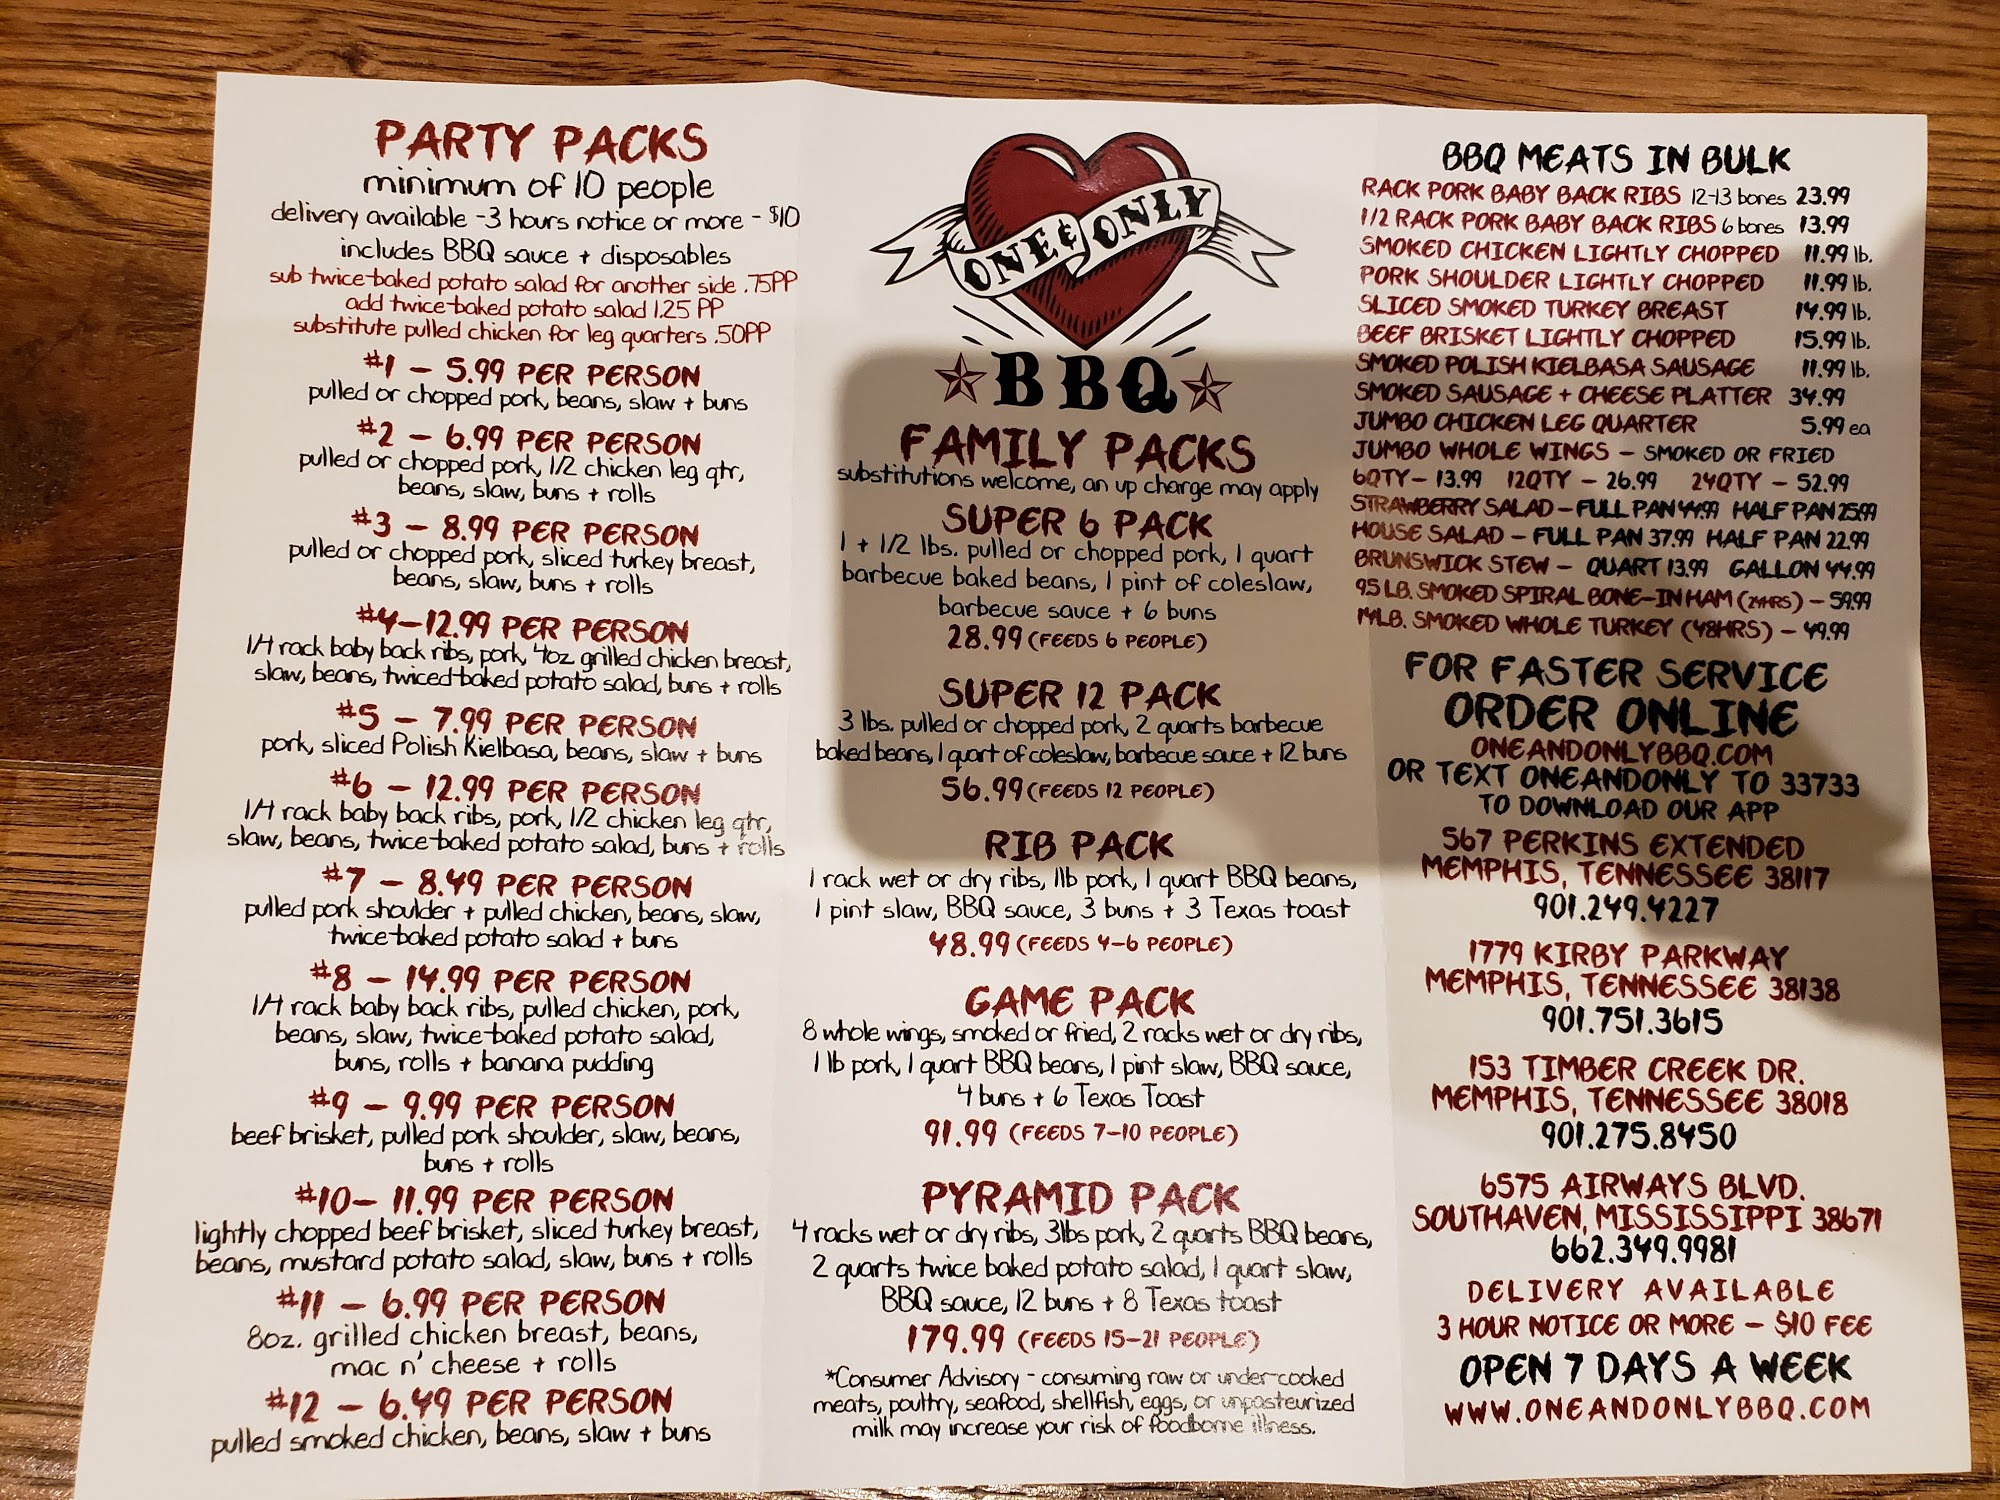 PARTY PACKS
minimum of 10 people
delivery available -3 hours notice or more - $10
includes BBQ sauce + disposables
sub twice-baked potato salad for another side .75PP
add twice-baked potato salad 1.25 PP
substitute pulled chicken for leg quarters .50PP
#1 – 5.99 PER PERSON
pulled or chopped pork, beans, slaw + buns
#2 – 6.99 PER PERSON
pulled or chopped pork, 1/2 chicken leg qtr,
beans, slaw, buns + rolls
#3 – 8.99 PER PERSON
pulled or chopped pork, sliced turkey breast,
beans, slaw, buns + rolls
#4–12.99 PER PERSON
1/4 rack baby back ribs, pork, 4oz grilled chicken breast,
slaw, beans, twiced-baked potato salad, buns + rolls
#5 – 7.99 PER PERSON
pork, sliced Polish Kielbasa, beans, slaw + buns
#6 – 12.99 PER PERSON
1/4 rack baby back ribs, pork, 1/2 chicken leg qtr,
slaw, beans, twice-baked potato salad, buns + rolls
#7 – 8.49 PER PERSON
pulled pork shoulder + pulled chicken, beans, slaw,
twice-baked potato salad + buns
#8 – 14.99 PER PERSON
1/4 rack baby back ribs, pulled chicken, pork,
beans, slaw, twice-baked potato salad,
buns, rolls + banana pudding
#9 – 9.99 PER PERSON
beef brisket, pulled pork shoulder, slaw, beans,
buns + rolls
#10– 11.99 PER PERSON
lightly chopped beef brisket, sliced turkey breast,
beans, mustard potato salad, slaw, buns + rolls
#11 – 6.99 PER PERSON
8oz. grilled chicken breast, beans,
mac n' cheese + rolls
#12 – 6.49 PER PERSON
pulled smoked chicken, beans, slaw + buns
ONE & ONLY
BBQ
FAMILY PACKS
substitutions welcome, an up charge may apply
SUPER 6 PACK
1 + 1/2 lbs. pulled or chopped pork, 1 quart
barbecue baked beans, 1 pint of coleslaw,
barbecue sauce + 6 buns
28.99 (FEEDS 6 PEOPLE)
SUPER 12 PACK
3 lbs. pulled or chopped pork, 2 quarts barbecue
baked beans, 1 quart of coleslaw, barbecue sauce + 12 buns
56.99 (FEEDS 12 PEOPLE)
RIB PACK
1 rack wet or dry ribs, 1lb pork, 1 quart BBQ beans,
1 pint slaw, BBQ sauce, 3 buns + 3 Texas toast
48.99 (FEEDS 4-6 PEOPLE)
GAME PACK
8 whole wings, smoked or fried, 2 racks wet or dry ribs,
1 lb pork, 1 quart BBQ beans, 1 pint slaw, BBQ sauce,
4 buns + 6 Texas Toast
91.99 (FEEDS 7-10 PEOPLE)
PYRAMID PACK
4 racks wet or dry ribs, 3lbs pork, 2 quarts BBQ beans,
2 quarts twice baked potato salad, 1 quart slaw,
BBQ sauce, 12 buns + 8 Texas toast
179.99 (FEEDS 15-21 PEOPLE)
*Consumer Advisory - consuming raw or under-cooked
meats, poultry, seafood, shellfish, eggs, or unpasteurized
milk may increase your risk of foodborne illness.
BBQ MEATS IN BULK
RACK PORK BABY BACK RIBS 12-13 bones 23.99
1/2 RACK PORK BABY BACK RIBS 6 bones 13.99
SMOKED CHICKEN LIGHTLY CHOPPED 11.99 lb.
PORK SHOULDER LIGHTLY CHOPPED 11.99 lb.
SLICED SMOKED TURKEY BREAST 14.99 lb.
BEEF BRISKET LIGHTLY CHOPPED 15.99 lb.
SMOKED POLISH KIELBASA SAUSAGE 11.99 lb.
SMOKED SAUSAGE + CHEESE PLATTER 34.99
JUMBO CHICKEN LEG QUARTER 5.99 ea
JUMBO WHOLE WINGS – SMOKED OR FRIED
6QTY – 13.99 12QTY – 26.99 24QTY – 52.99
STRAWBERRY SALAD – FULL PAN 44.99 HALF PAN 25.99
HOUSE SALAD – FULL PAN 37.99 HALF PAN 22.99
BRUNSWICK STEW – QUART 13.99 GALLON 44.99
9.5 LB. SMOKED SPIRAL BONE-IN HAM (24HRS) – 59.99
14LB. SMOKED WHOLE TURKEY (48HRS) – 49.99
FOR FASTER SERVICE
ORDER ONLINE
ONEANDONLYBBQ.COM
OR TEXT ONEANDONLY TO 33733
TO DOWNLOAD OUR APP
567 PERKINS EXTENDED
MEMPHIS, TENNESSEE 38117
901.249.4227
1779 KIRBY PARKWAY
MEMPHIS, TENNESSEE 38138
901.751.3615
153 TIMBER CREEK DR.
MEMPHIS, TENNESSEE 38018
901.275.8450
6575 AIRWAYS BLVD.
SOUTHAVEN, MISSISSIPPI 38671
662.349.9981
DELIVERY AVAILABLE
3 HOUR NOTICE OR MORE – $10 FEE
OPEN 7 DAYS A WEEK
WWW.ONEANDONLYBBQ.COM